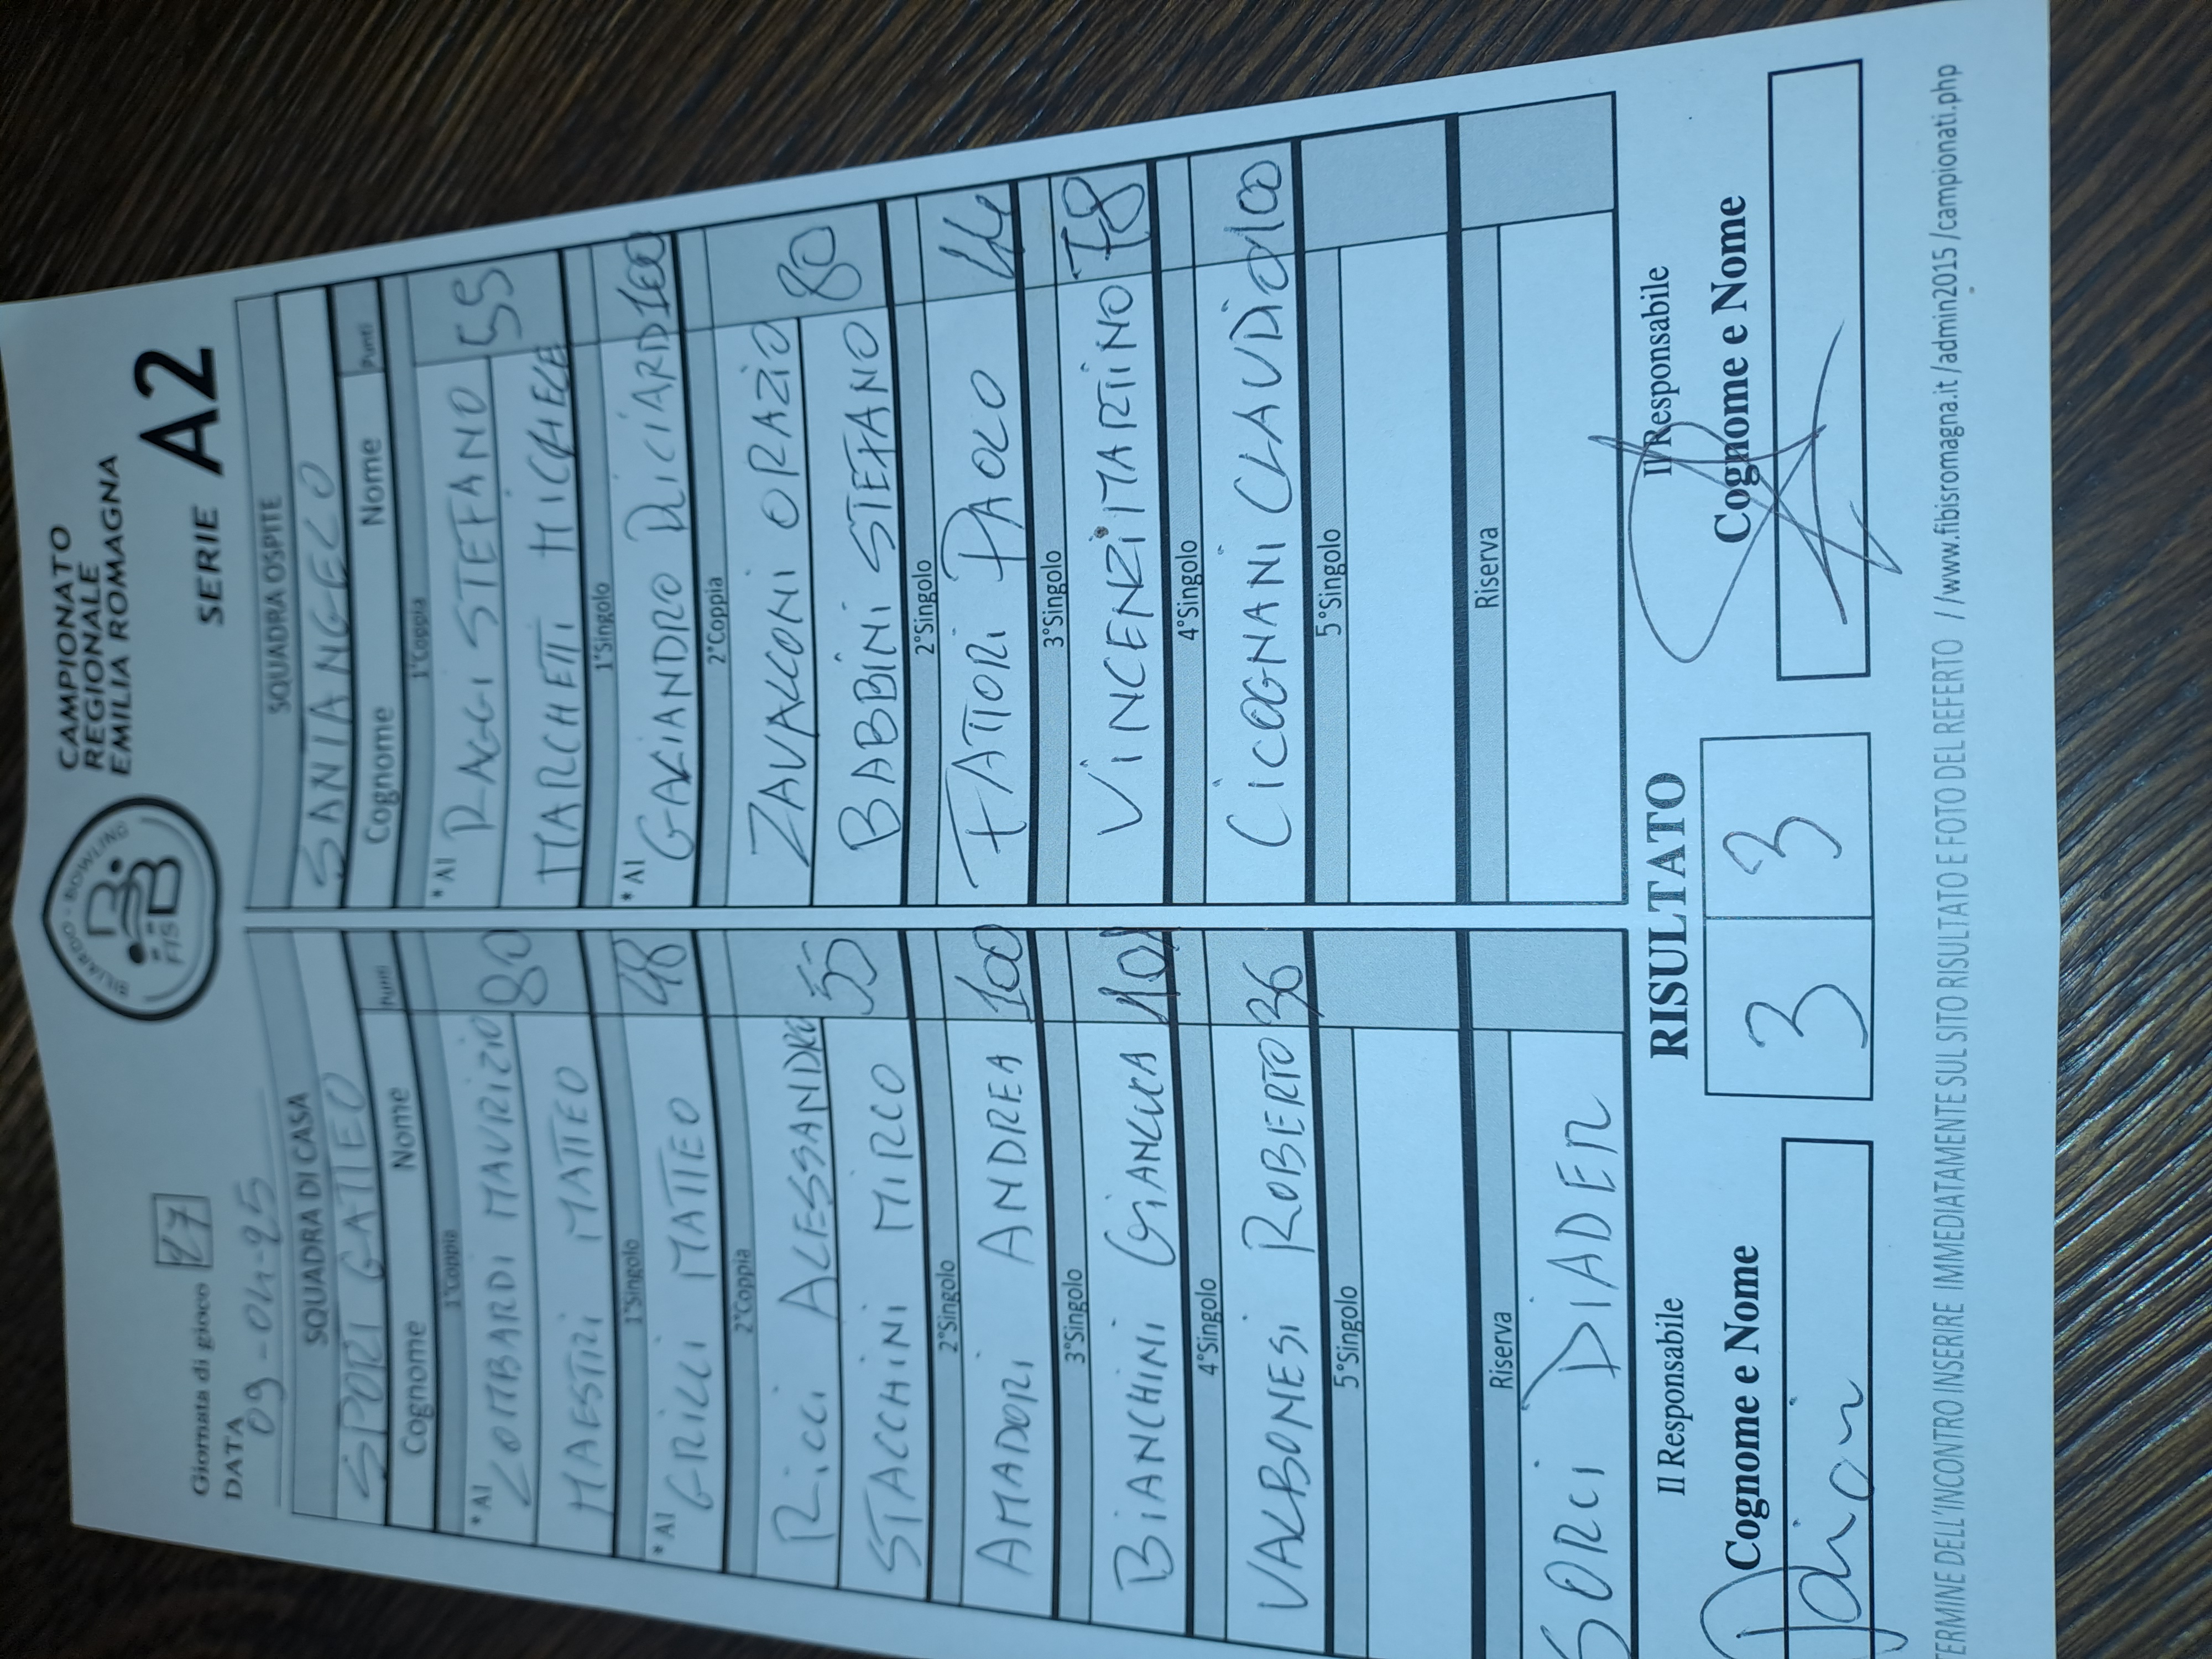 Giornata di gioco 17
DATA
09-04-25
BILIARDO - BOWLING
FISBB
CAMPIONATO
REGIONALE
EMILIA ROMAGNA
SERIE A2
SQUADRA DI CASA
SPORT GATTEO
Cognome Nome Punti
1°Coppia
*A1 LOMBARDI MAURIZIO 80
MAESTRI MATTEO
1°Singolo
*A1 GRILLI MATTEO 48
2°Coppia
RICCI ALESSANDRO
STACCHINI MIRCO 55
2°Singolo
AMADORI ANDREA 100
3°Singolo
BIANCHINI GIANLUCA 101
4°Singolo
VALBONESI ROBERTO 36
5°Singolo
Riserva
SORCI DIADER
SQUADRA OSPITE
SANTANGELO
Cognome Nome Punti
1°Coppia
*A1 RAGGI STEFANO 55
MARCHETTI MICHELE
1°Singolo
*A1 GALIANDRO RICIARD 100
2°Coppia
ZAVALLONI ORAZIO 80
BABBINI STEFANO
2°Singolo
FATTORI PAOLO 44
3°Singolo
VINCENZI MARTINO 78
4°Singolo
CICOGNANI CLAUDIO 100
5°Singolo
Riserva
Il Responsabile
Cognome e Nome
RISULTATO
3 3
Il Responsabile
Cognome e Nome
TERMINE DELL'INCONTRO INSERIRE IMMEDIATAMENTE SUL SITO RISULTATO E FOTO DEL REFERTO //www.fibisromagna.it/admin2015/campionati.php